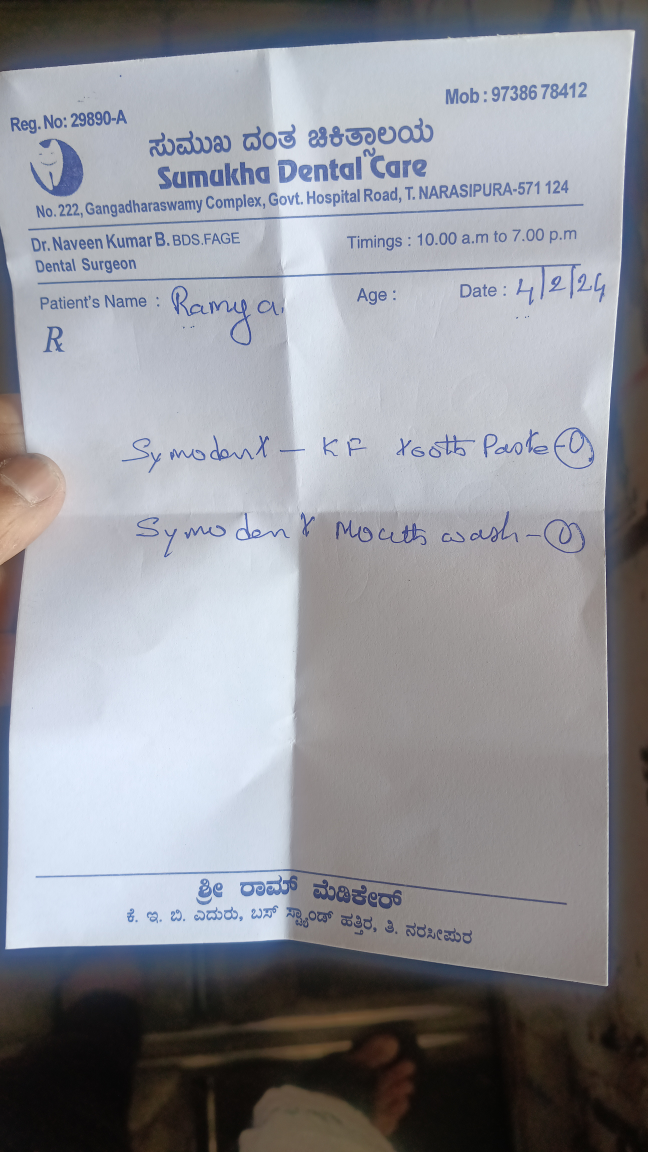 Reg. No: 29890-A
Mob : 97386 78412
ಸುಮುಖ ದಂತ ಚಿಕಿತ್ಸಾಲಯ
Sumukha Dental Care
No. 222, Gangadharaswamy Complex, Govt. Hospital Road, T. NARASIPURA-571 124
Dr. Naveen Kumar B. BDS.FAGE
Timings : 10.00 a.m to 7.00 p.m
Dental Surgeon
Patient's Name : Ramya. Age : Date : 4/2/24
℞
Symodent - KF Tooth Paste - (1)
Symodent Mouth wash - (1)
ಶ್ರೀ ರಾಮ್ ಮೆಡಿಕೇರ್
ಕೆ. ಇ. ಬಿ. ಎದುರು, ಬಸ್ ಸ್ಟ್ಯಾಂಡ್ ಹತ್ತಿರ, ತಿ. ನರಸೀಪುರ